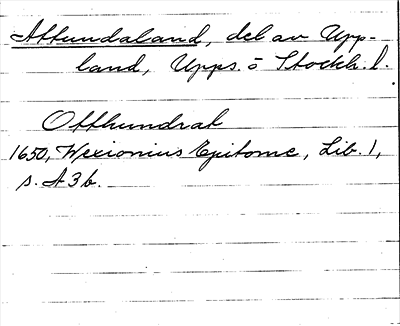 Attundaland, del av Upp-
land, Upps. o Stockh. l.
Offhundral
1650, Wexionius Epitome, Lib. 1,
s. A 3 b.